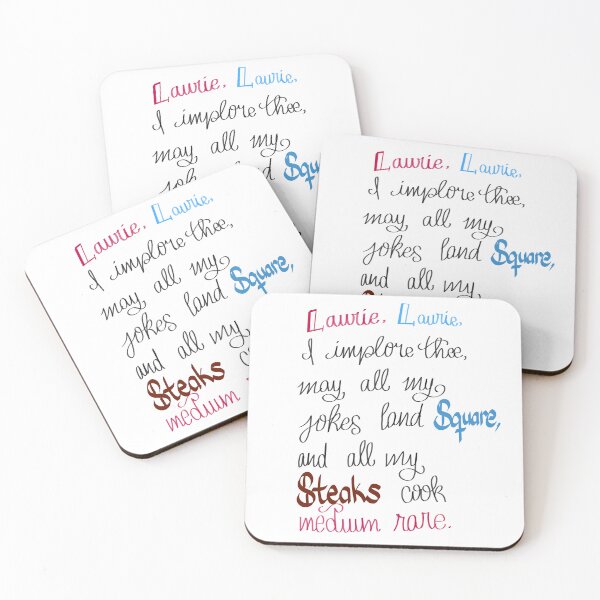 Laurie, Laurie,
I implore thee,
may all my
Laurie, Laurie,
I implore thee,
may all my
jokes land Square,
and all my
Laurie, Laurie,
I implore thee,
may all my
jokes land Square,
and all my
Steaks
medium
Laurie, Laurie,
I implore thee,
may all my
jokes land Square,
and all my
Steaks cook
medium rare.